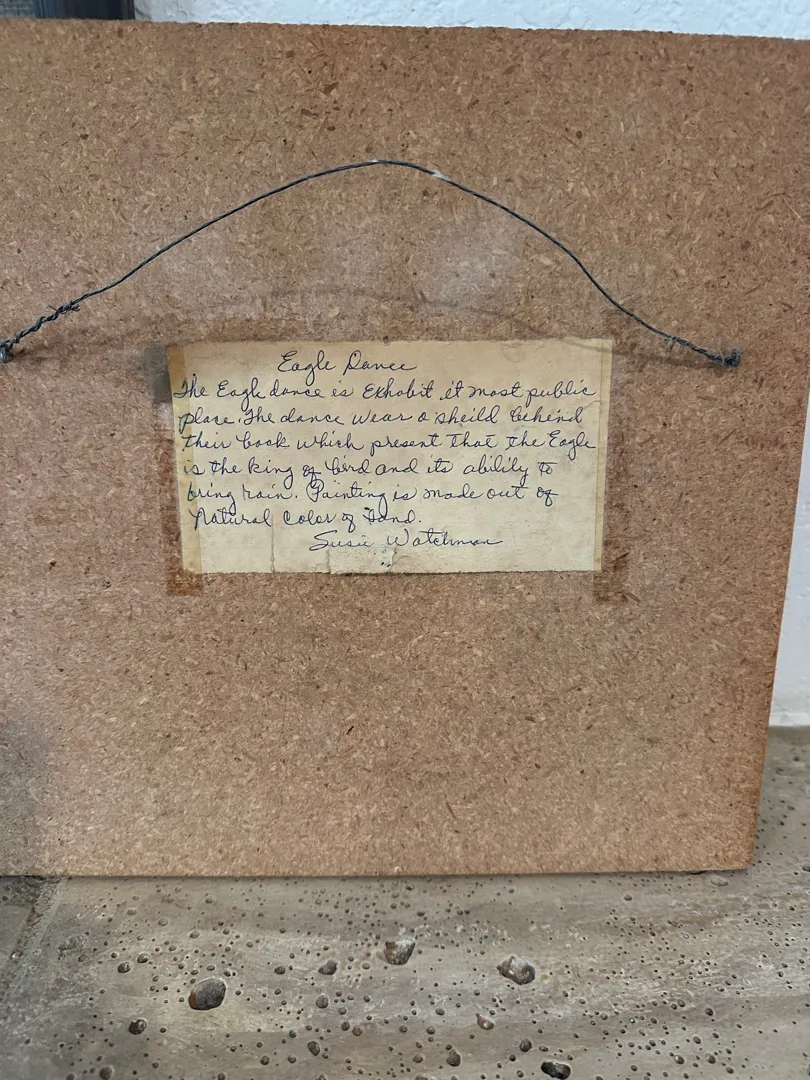 Eagle Dance
The Eagle dance is Exhobit it most public
place. The dance wear a sheild behind
their back which present that the Eagle
is the king of bird and its ability to
bring rain. Painting is made out of
natural color of Sand.
Susie Watchman